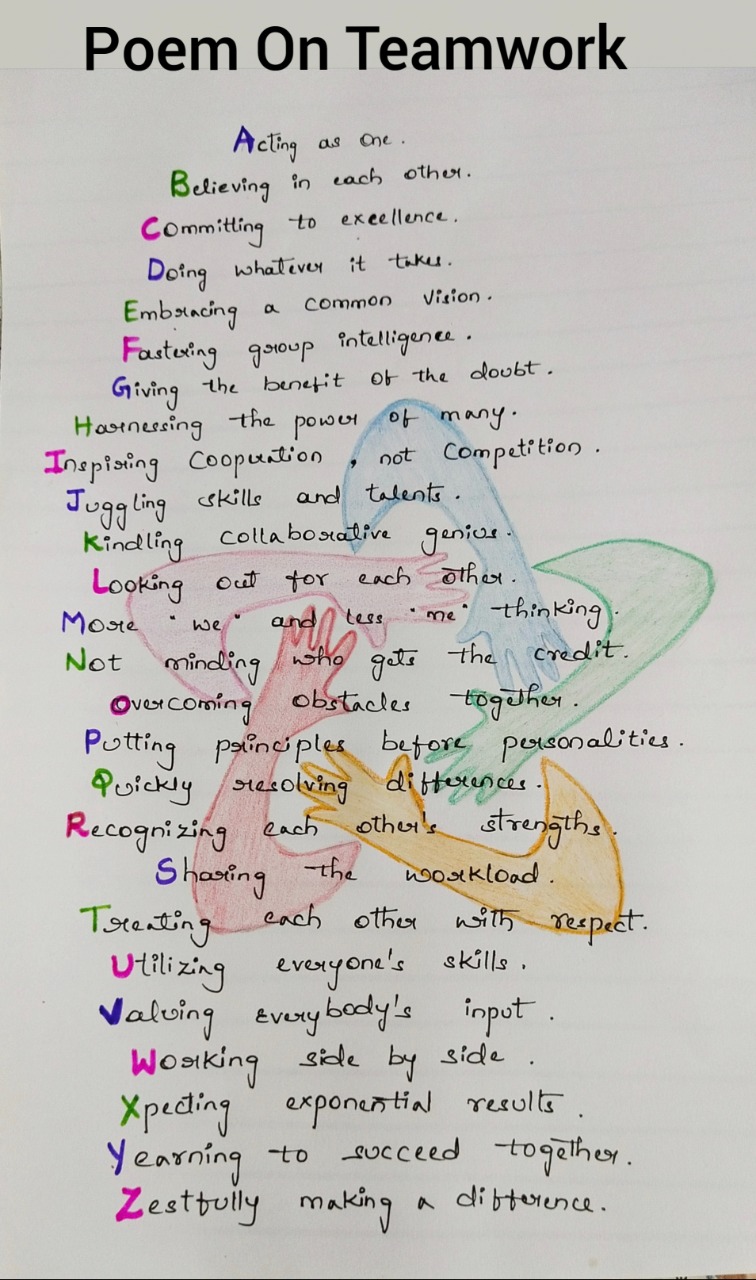 Poem On Teamwork
Acting as one.
Believing in each other.
Committing to excellence.
Doing whatever it takes.
Embracing a common vision.
Fastering group intelligence.
Giving the benefit of the doubt.
Harnessing the power of many.
Inspiring Cooperation, not Competition.
Juggling skills and talents.
Kindling collaborative genius.
Looking out for each other.
More "we" and less "me" thinking.
Not minding who gets the credit.
Overcoming obstacles together.
Putting principles before personalities.
Quickly resolving differences.
Recognizing each other's strengths.
Sharing the workload.
Treating each other with respect.
Utilizing everyone's skills.
Valuing everybody's input.
Working side by side.
Xpecting exponential results.
Yearning to succeed together.
Zestfully making a difference.